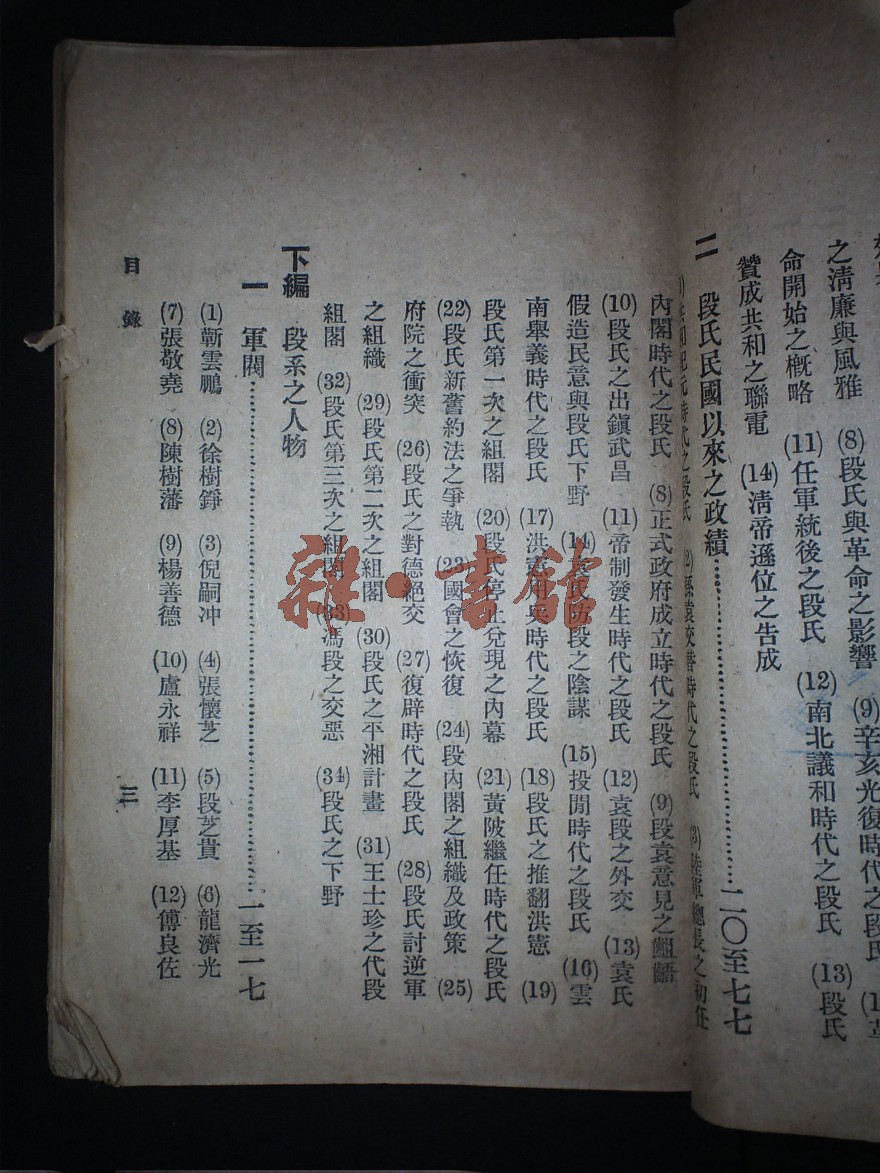 之清廉與風雅　(8)段氏與革命之影響　(9)辛亥光復時代之段氏
命開始之概略　(11)任軍統後之段氏　(12)南北議和時代之段氏　(13)段氏
贊成共和之聯電　(14)淸帝遜位之告成
二　段氏民國以來之政績……………二〇至七七
內閣時代之段氏　(8)正式政府成立時代之段氏　(9)段袁意見之齟齬
(10)段氏之出鎭武昌　(11)帝制發生時代之段氏　(12)袁段之外交　(13)袁氏
假造民意與段氏下野　(14)袁氏防段之陰謀　(15)投閒時代之段氏　(16)雲
南舉義時代之段氏　(17)洪憲用兵時代之段氏　(18)段氏之推翻洪憲　(19)
段氏第一次之組閣　(20)段氏停止兌現之內幕　(21)黃陂繼任時代之段氏
(22)段氏新舊約法之爭執　(23)國會之恢復　(24)段內閣之組織及政策　(25)
府院之衝突　(26)段氏之對德絕交　(27)復辟時代之段氏　(28)段氏討逆軍
之組織　(29)段氏第二次之組閣　(30)段氏之平湘計畫　(31)王士珍之代段
組閣　(32)段氏第三次之組閣　(33)馮段之交惡　(34)段氏之下野
下編　段系之人物
一　軍閥……………一至一七
(1)靳雲鵬　(2)徐樹錚　(3)倪嗣冲　(4)張懷芝　(5)段芝貴　(6)龍濟光
(7)張敬堯　(8)陳樹藩　(9)楊善德　(10)盧永祥　(11)李厚基　(12)傅良佐
目錄　三
雜·書館